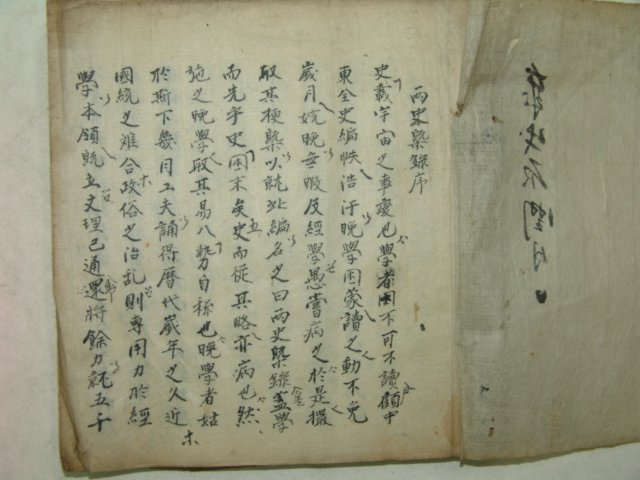 兩史槩錄序
史載宇宙之事變也學者固不可不讀顧中
東全史編帙浩汗晚學困蒙讀之動不免
歲月婉晚無暇及經學愚嘗病之於是撮
取其梗槩以就此編名之曰兩史槩錄盖學
而先乎史固末矣史而從其略亦病也然
施之晚學取其易入勢自稱也晚學者姑
於斯下幾月工夫誦得曆代歲年之久近
國統之难合政俗之治乱則專用力於經
學本領旣立文理已通還將餘力就五千